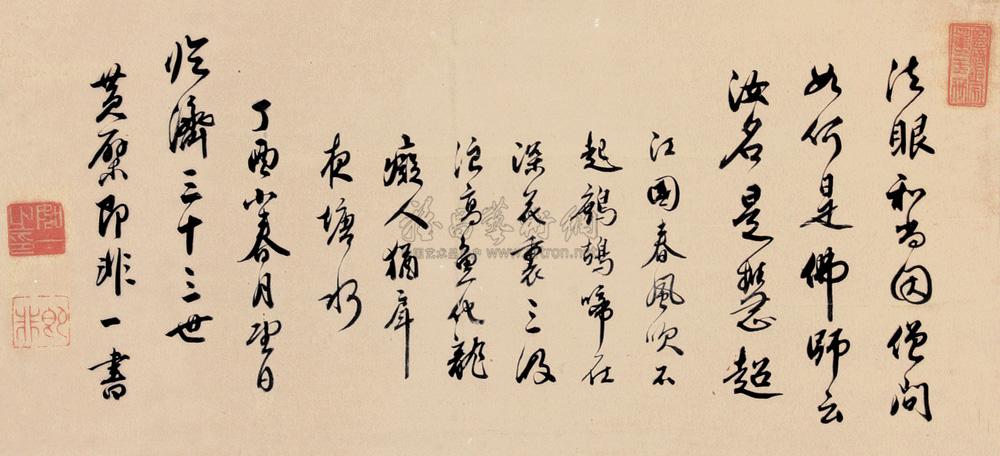 法眼和尚因僧问
如何是佛师云
汝名是慧超
江国春风吹不
起鹧鸪啼在
深花裏三汲
浪高鱼化龙
癡人犹戽
夜塘水
丁酉小春月望日
临济三十三世
黄檗即非一書